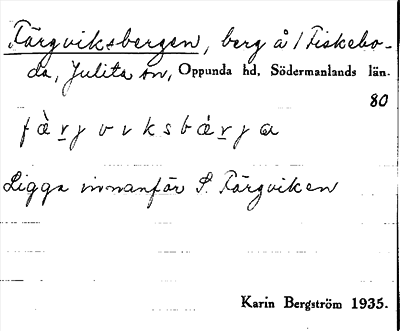 Färgviksbergen, berg å 1 Fiskebo-
da, Julita sn, Oppunda hd, Södermanlands län.
80
fὰr̲j v ı k s b ά r̲ j a
Ligga innanför S. Färgviken
Karin Bergström 1935.